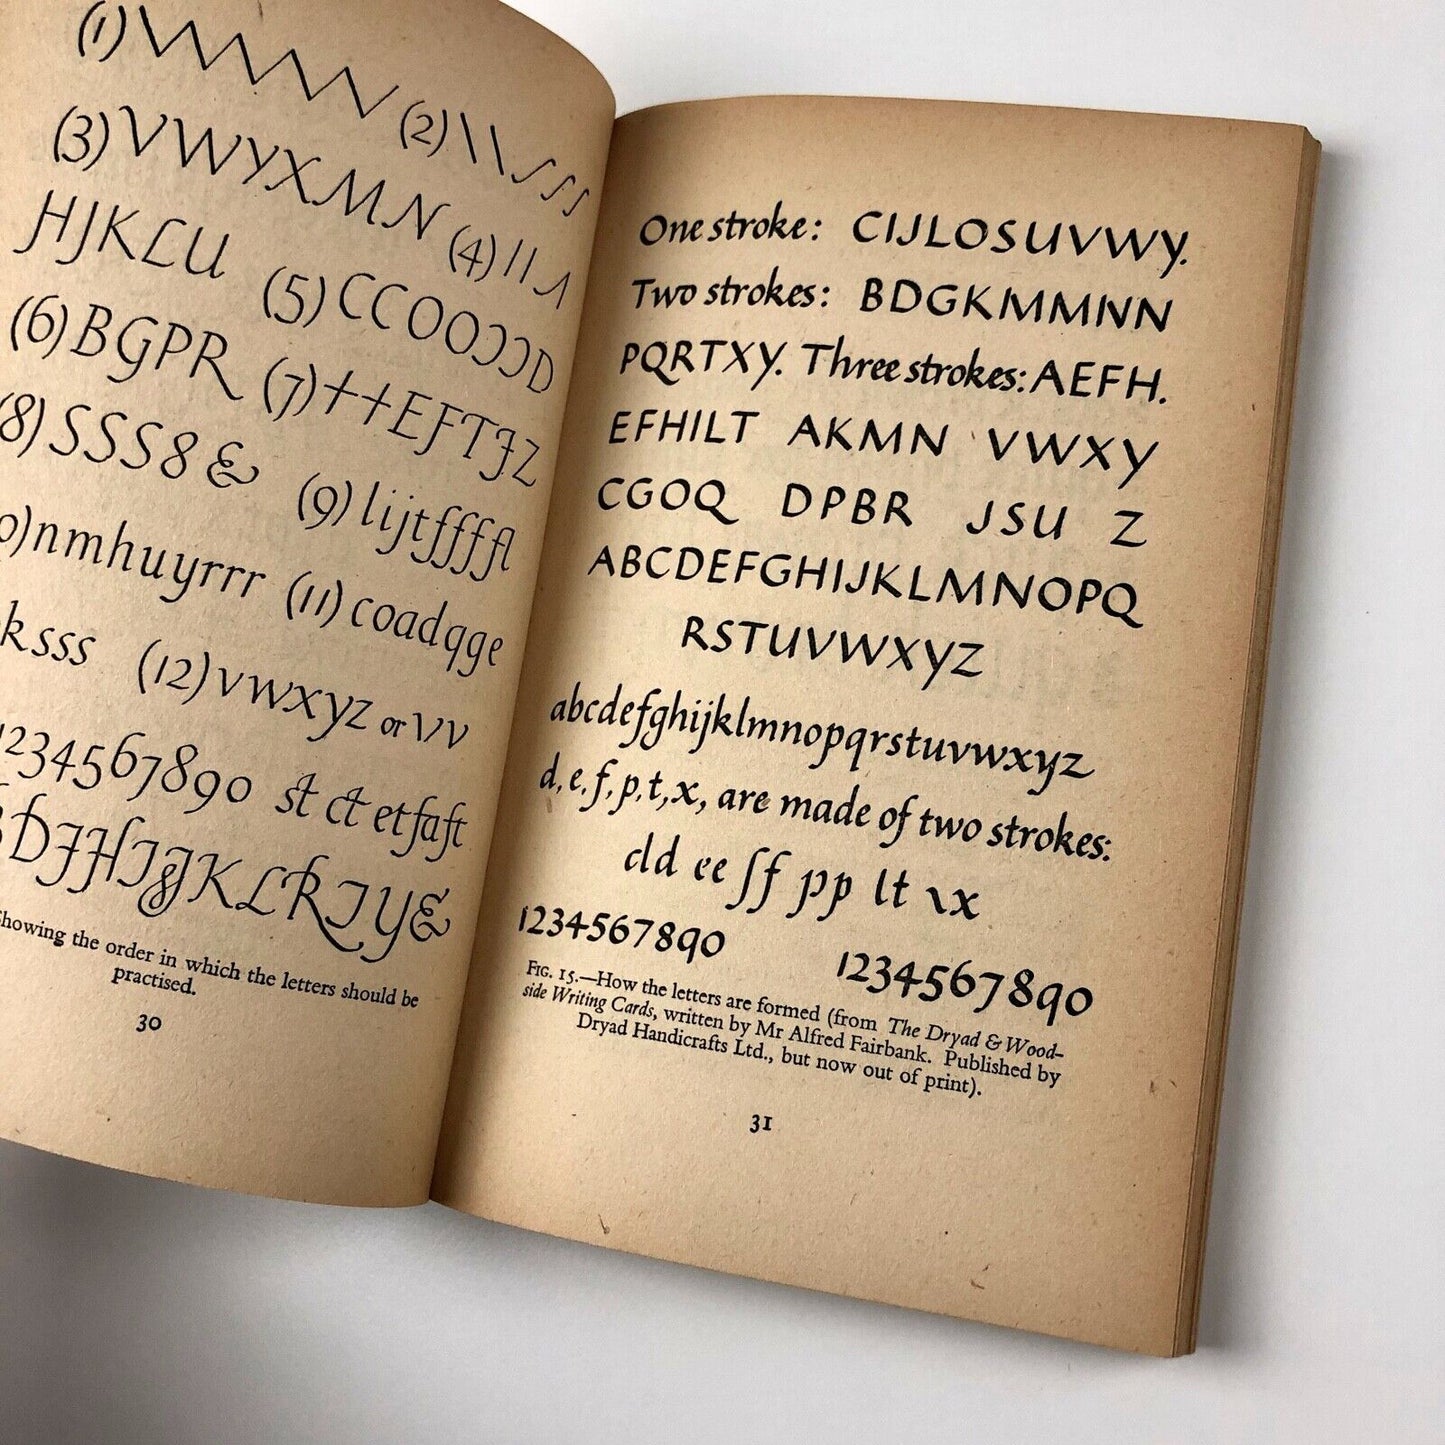 (1)
(2)
(3) VWYXMN
HJKLU (4)
(5) CCOO
(6) BGPR (7) EFTJZ
(8) SSS8& (9) lijtffffl
nmhuyrrr (11) coadqge
ksss (12) vwxyz or vv
1234567890 st ct et fa ft
DFHIJKLRTY&
howing the order in which the letters should be
practised.
30
One stroke: CIJLOSUVWY.
Two strokes: BDGKMMNN
PQRTXY. Three strokes: AEFH.
EFHILT AKMN VWXY
CGOQ DPBR JSU Z
ABCDEFGHIJKLMNOPQ
RSTUVWXYZ
abcdefghijklmnopqrstuvwxyz
d, e, f, p, t, x, are made of two strokes:
cld ee ſf pp lt \x
1234567890 1234567890
FIG. 15.—How the letters are formed (from The Dryad & Wood-
side Writing Cards, written by Mr Alfred Fairbank. Published by
Dryad Handicrafts Ltd., but now out of print).
31